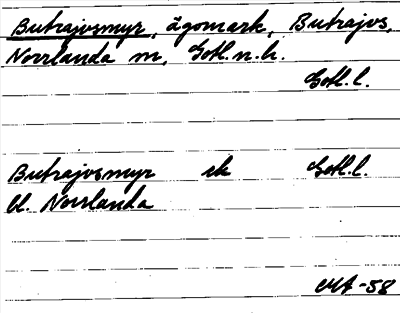 Butrajvsmyr, ägomark, Butrajvs,
Norrlanda sn, Gotl.n.h.
Gotl.l.
Butrajvsmyr ek Gotl.l.
bl. Norrlanda
-58